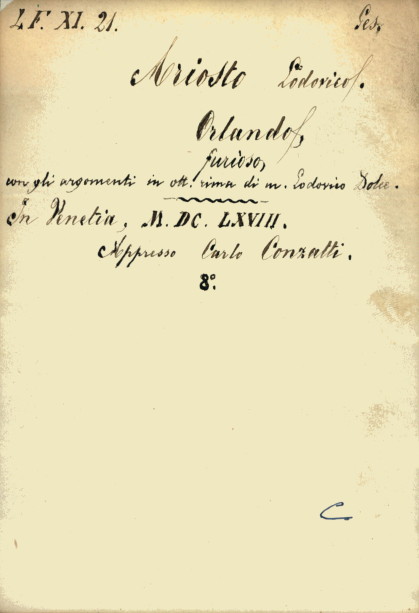 LF. XI. 21. Ges.
Ariosto Lodovico.
Orlando,
furioso,
con gli argomenti in ott. rima di m. Lodovico Dolce.
In Venetia, M. DC. LXVIII.
Appresso Carlo Conzatti.
8º.
C